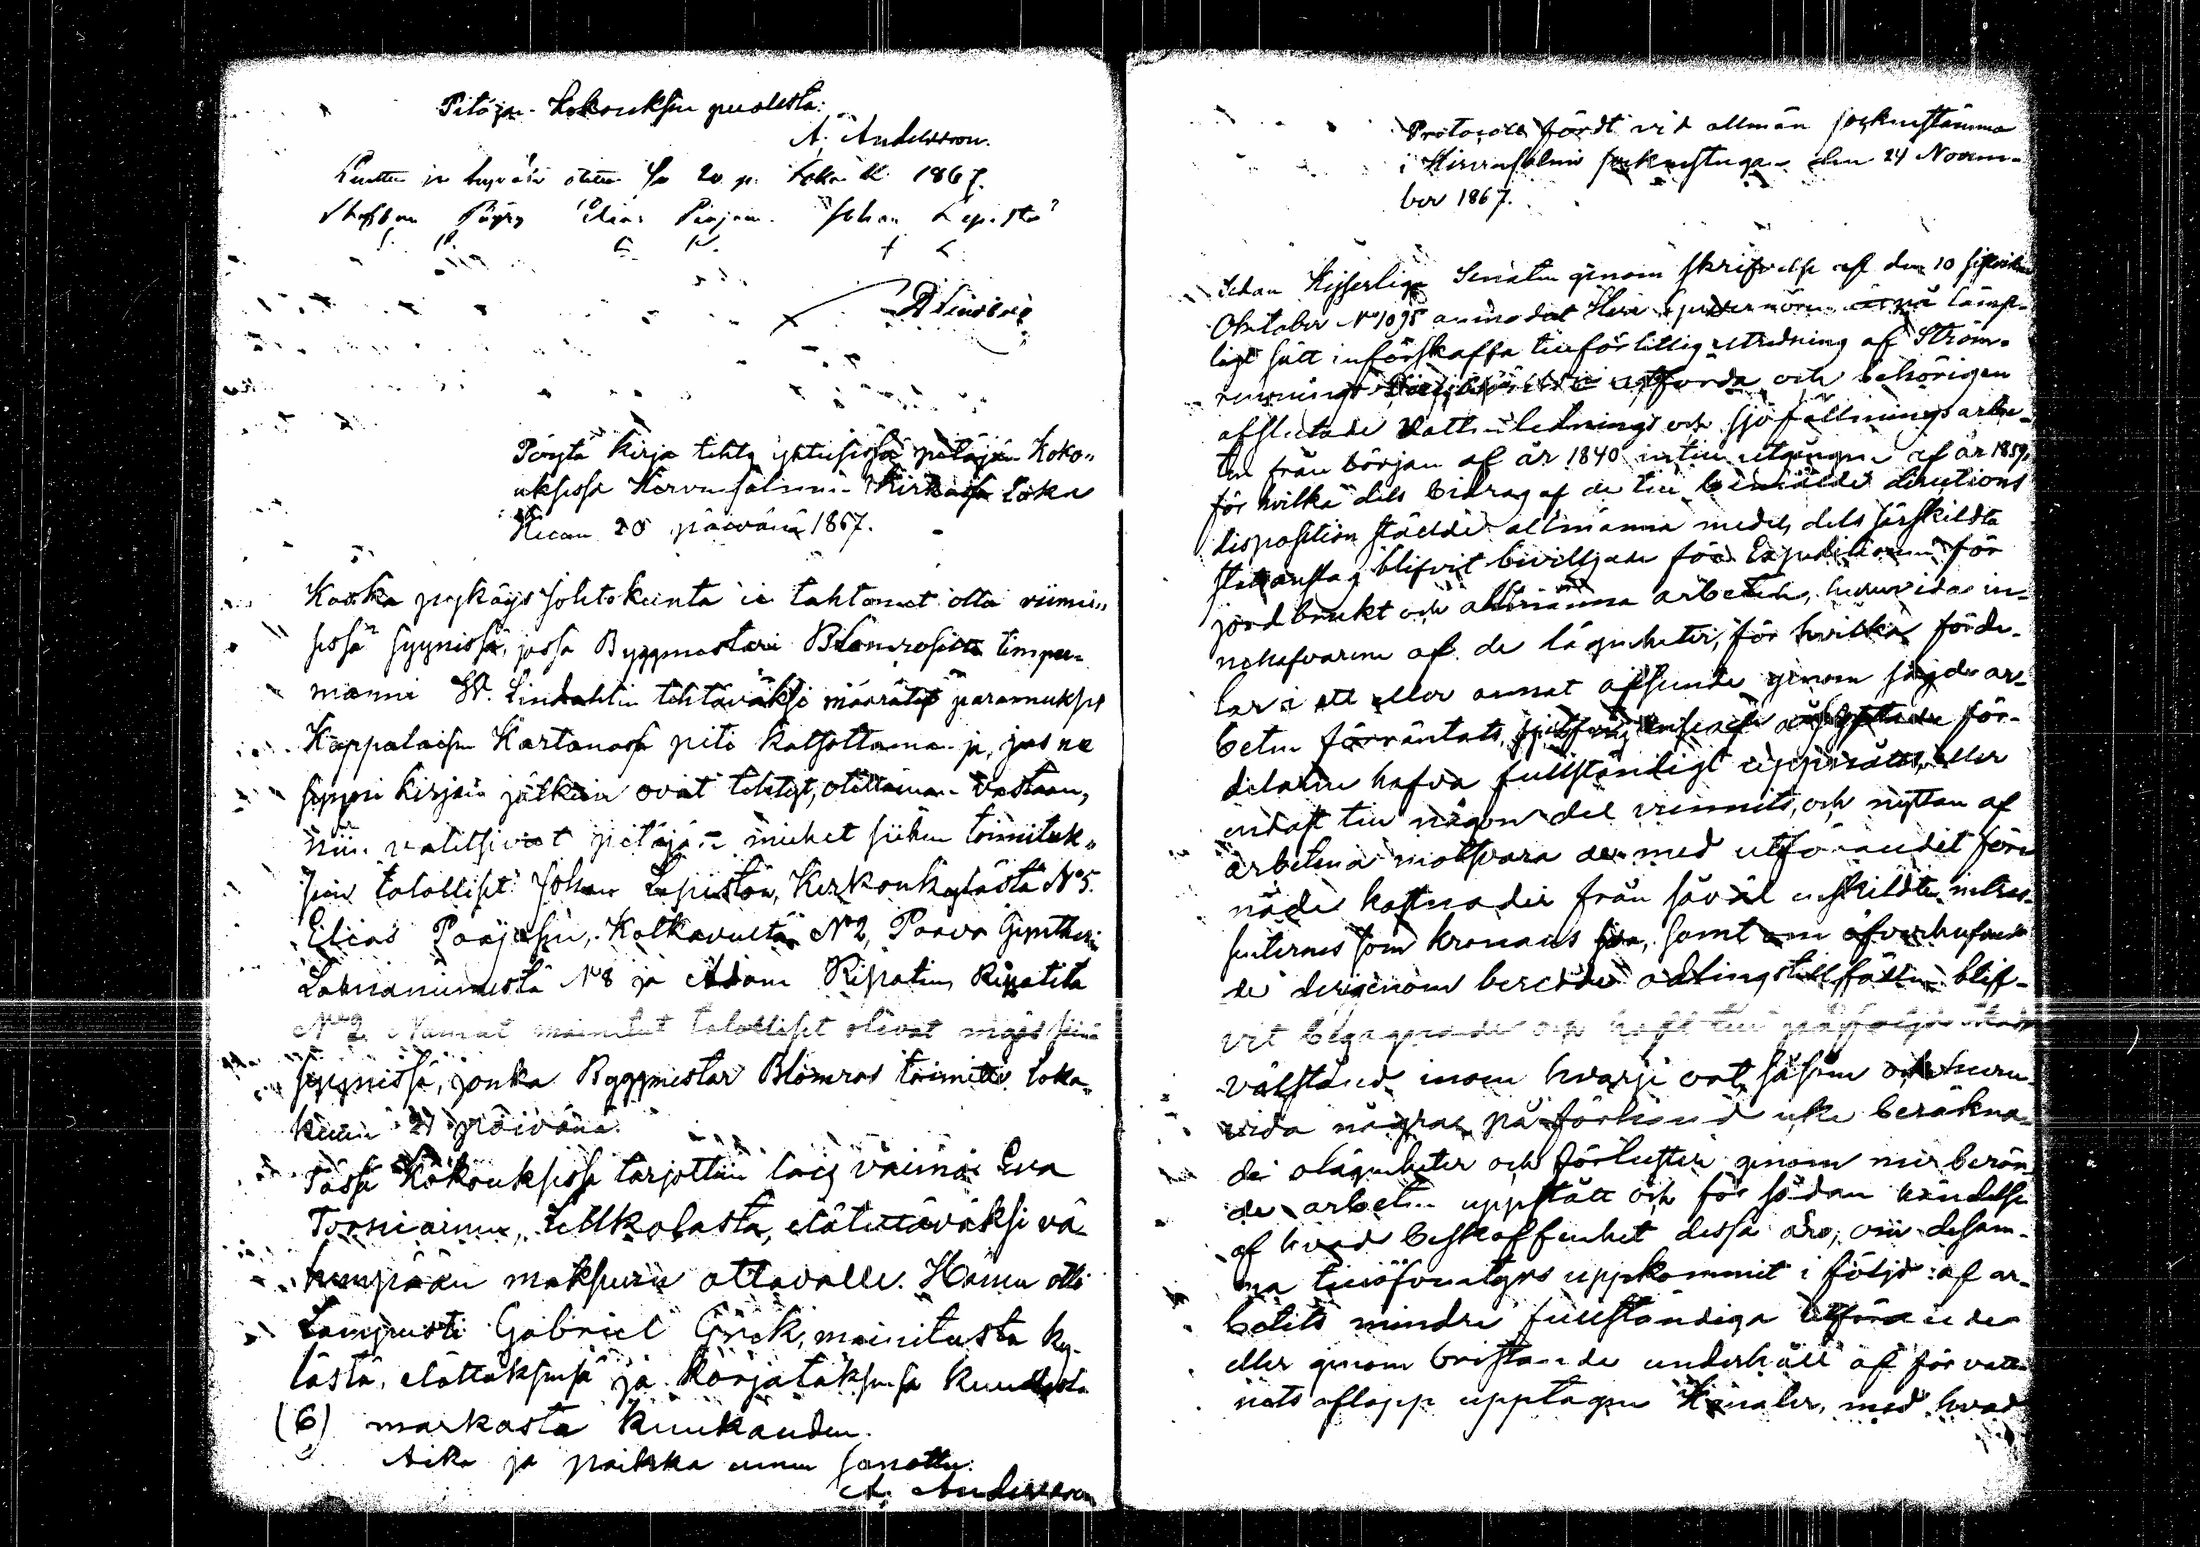 Pitäjän Kokouksen puolesta:
A. Andersson.
Luettu ja hyväksi otettu se 20 p. Loka K. 1867.
Staffan Pöyry Elias Paajan. Johan Lepistö
Pöytä kirja tehty yhteisessä pitäjän Koko-
uksessa Hirvensalmin Kirkossa Loka
Kuun 20 päivänä 1867.
Koska nykäys Johtokunta ei tahtonut olla viimei-
sessä syynissä, jossa Byggmestari Blomrosilta timper-
manni W. Lindahlin tehtäväksi määrätyt parannukset
Kappalaisen Kartanossa piti katsottaman ja, jos ne
syyni kirjain jälkein ovat tehtyt, otettaman vastaan,
niin valitsivat pitäjän miehet siihen toimituk-
seen talolliset Johan Lepistön, Kirkonkylästä No 5.
Elias Paajasen, Kotkavuelta No 2, Paavo Gyntherin
Lahnaniemestä No 8 ja Adam Ripatin, Ripatita
No 2. Namat mainitut talolliset olivat myös siinä
syynissä, jonka Byggmestar Blomros toimitti loka-
kuun 21 päivänä.
Tässä Kokouksessa tarjottiin laes vaimo Eva
Torniainen, Lellkolasta, elätettäväksi vä
hempään maksuun ottavalle. Hänen otti
Lampuoti Gabriel Grek, mainitusta ky-
lästä, elättäksensä ja korjataksensa kuudesta
(6) markasta Kuukauden.
Aika ja paikka ennen sanottu.
A. Andersson
Protocoll fördt vid allmän sockenstämma
i Hirvensalmi sockenstuga den 24 Novem-
ber 1867.
Sedan Kejserliga Senaten genom skrifvelse af den 10 sistvikne
Oktober No 1095 anmodat Herr Guvernören att på lämp-
ligt sätt införskaffa tillförlitlig utredning af Ström-
rensnings utförda och behörigen
afslutade Vattuledningsoch sjöfällningsarbe-
ten från början af år 1840 intill utgången af år 1859,
för hvilka dels bidrag af de till bemälde direktions
disposition ställde allmänna medel, dels särskildta
statsanslag blifvit beviljade för Expeditionen för
jordbruket och allmänna arbeten, huruvida in-
nehafvarene af de lägenheter, för hvilka förde-
lar i ett eller annat afseende genom sagde ar-
beten förväntats, för-
delarne hafva fullständigt uppnåtts, eller
endast till någon del vunnits, och nyttan af
arbetena motsvara de med utförandet före-
nade kostnader från såväl enskildte intres-
senternes som kronans sida, samt om öfverhufvud
de derigenom beredde odlingstillfällen blif-
vit begagnade och haft till påföljd ökadt
välstånd inom hvarje ort, såsom ock huru-
vida några på förhand icke beräkna-
de olägenheter och förluster genom merberör-
de arbeten uppstått och för sådan händelse
af hvad beskaffenhet dessa äro, om desam-
ma tilläfventyrs uppkommit i följd af ar-
betets mindre fullständiga utförande
eller genom bristande underhåll af för vatt-
nets aflopp upptagne Kanaler, med hvad